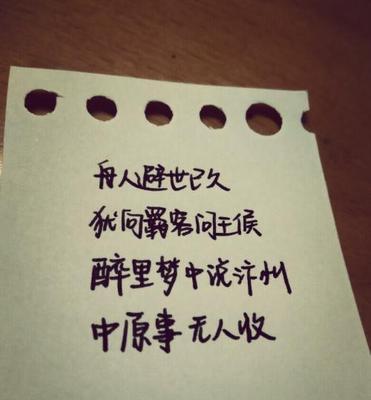 舟人避世已久
犹向羁客问王侯
醉里梦中说汴州
中原事无人收